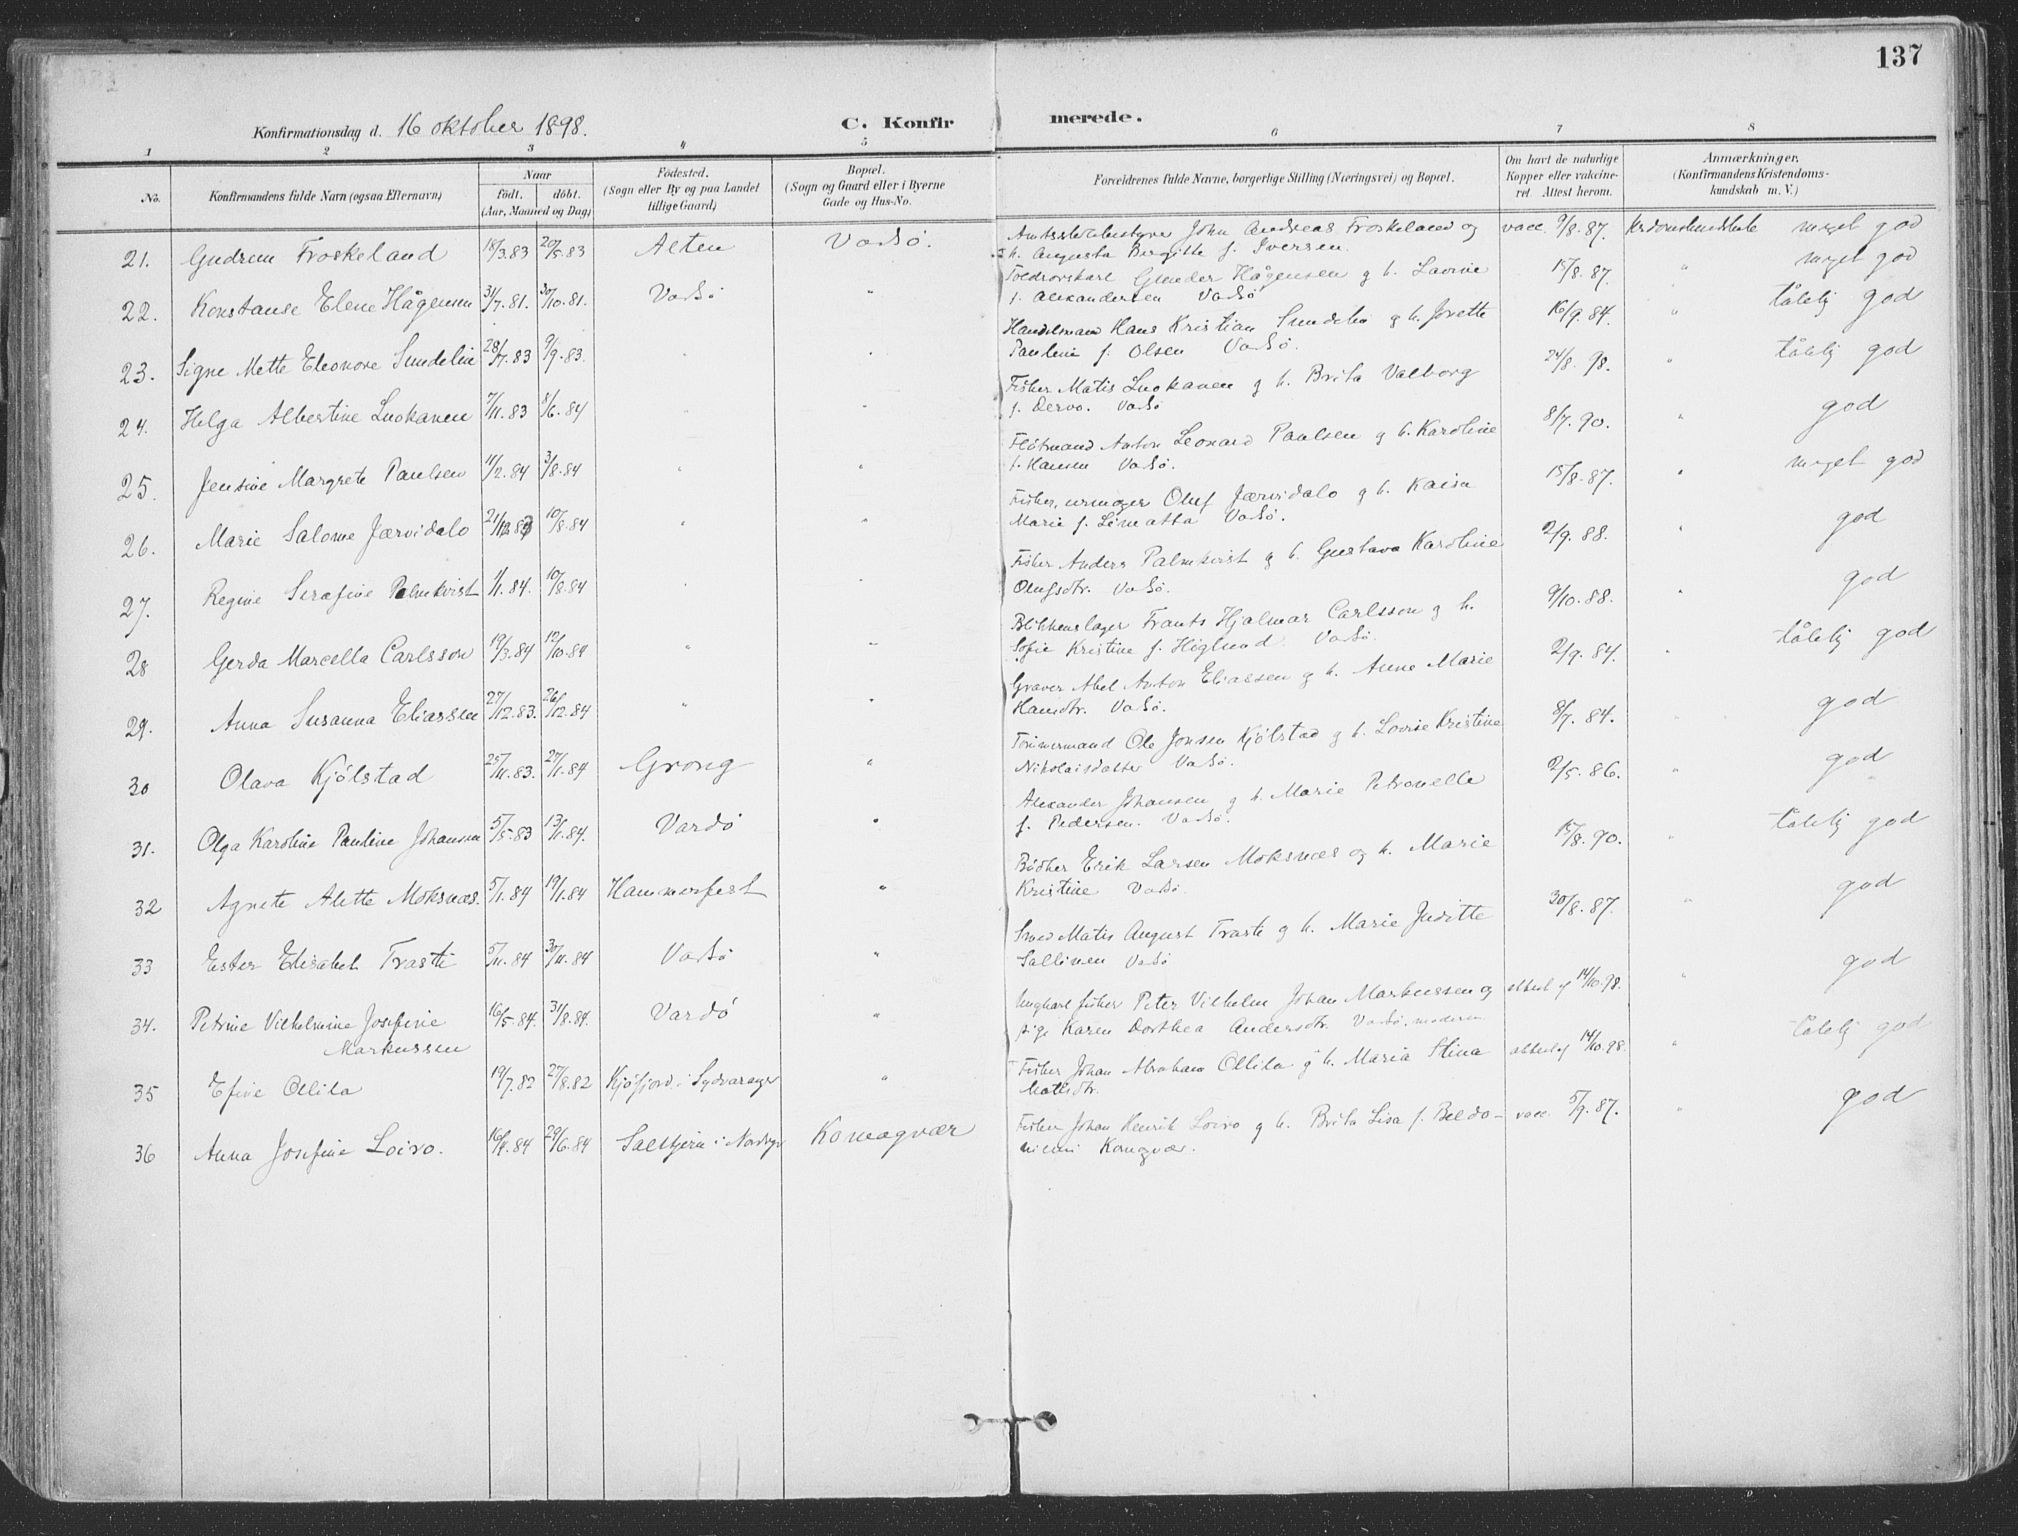 137
Konfirmationsdag d. 16 oktober 1898.
C. Konfirmerede.
1 2 3 4 5 6 7 8
No.
Konfirmandens fulde Navn (ogsaa Efternavn)
Naar
født. døbt.
(Aar, Maaned og Dag)
Fødested.
(Sogn eller By og paa Landet
tillige Gaard)
Bopæl.
(Sogn og Gaard eller i Byerne
Gade og Hus-No.
Forældrenes fulde Navne, borgerlige Stilling (Næringsvei) og Bopæl.
Om havt de naturlige
Kopper eller vakcine-
ret. Attest herom.
Anmærkninger.
(Konfirmandens Kristendoms-
kundskab m. V.)
21. Gudrun Froskeland 18/3.83 20/5.83 Alten Vadsö. Amtsskolebestyrer John Andreas Froskeland og vacc. 9/8.87. meget god
h. Augusta Bergitte f. Iversen.
22. Konstanse Elene Hågensen 31/7.81. 30/10.81. Vadsö " Toldrorskarl Gunder Hågensen g h. Lovine 15/8.87. " meget god
f. Alexandersen Vadsö
23. Signe Mette Eleonore Sundelin 28/7.83 9/9.83. Handelsmand Hans Kristian Sundelin g h. Josette 16/9.84. " tålelig god
Pauline f. Olsen Vadsö.
24. Helga Albertine Luokanen 7/11.83 8/6.84 Fisker Matis Luokanen g h. Brita Valborg 24/8.98. " tålelig god
f. Dervo. Vadsö
25. Jensine Margrete Paulsen 11/2.84 3/8.84 " " Flötmand Anton Leonard Paulsen g h. Karoline 8/7.90. " god
f. Hansen Vadsö.
26. Marie Salome Jærvidalo 21/12.83 10/8.84 " " Fisker, urmager Oluf Jærvidalo g h. Kaisa 15/8.87. " meget god
Marie f. Limatta Vadsö.
27. Regine Serafine Palmkvist 1/1.84. 10/8.84 Fisker Anders Palmkvist g h. Gustava Karoline 2/9.88. " god
Olufsdtr. Vadsö.
28 Gerda Marcella Carlsson 19/3.84 12/10.84 " " Blikkenslager Frants Hjalmar Carlsson g h. 9/10.88. " god
Sofie Kristine f. Höglund Vadsö.
29. Anna Susanna Eliassen 27/12.83. 26/12.84 " " Graver Abel Anton Eliassen g h. Anne Marie 2/9.84. " tålelig god
Hansdtr. Vadsö.
30 Olava Kjölstad 25/11.83. 27/1.84 Grong " Tömmermand Ole Jonsen Kjölstad g h. Lovise Kristine 8/7.84. " god
Nikolaisdatter Vadsö.
31. Olga Karoline Pauline Johansen 5/5.83 13/1.84. Vardö " Alexander Johansen g h. Marie Petronelle 2/5.86. " god
f. Pedersen. Vadsö.
32 Agnete Alette Moksnæs. 5/1.84 19/1.84 Hammerfest " Bödker Erik Larsen Moksnæs og h. Marie 15/8.90. " tålelig god
Kristine Vadsö.
33 Ester Elisabet Trasti 5/11.84 30/11.84 Vadsö " Smed Matis August Trasti g h. Marie Juditte 30/8.87. " god
Sallinen Vadsö
34. Petrine Vilhelmine Josefine 16/5.84. 31/8.84. Vardö " Ungkarl fisker Peter Vilhelm Johan Markussen og 14/10.98. " god
Markussen pige Karen Dorthea Andersdtr. Vadsö.
35 Efine Ollila 19/7.82 27/8.82 Kjöfjord i Sydvaranger " Fisker Johan Abraham Ollila g h. Maria Stina 14/10.98. " tålelig god
Matisdtr.
36 Anna Josefine Loivo. 16/4.84 29/6.84 Komagvær Fisker Johan Henrik Loivo g h. Brita Lisa f. Beldo- vacc. 5/9.87. " god
niemi Komgvær.